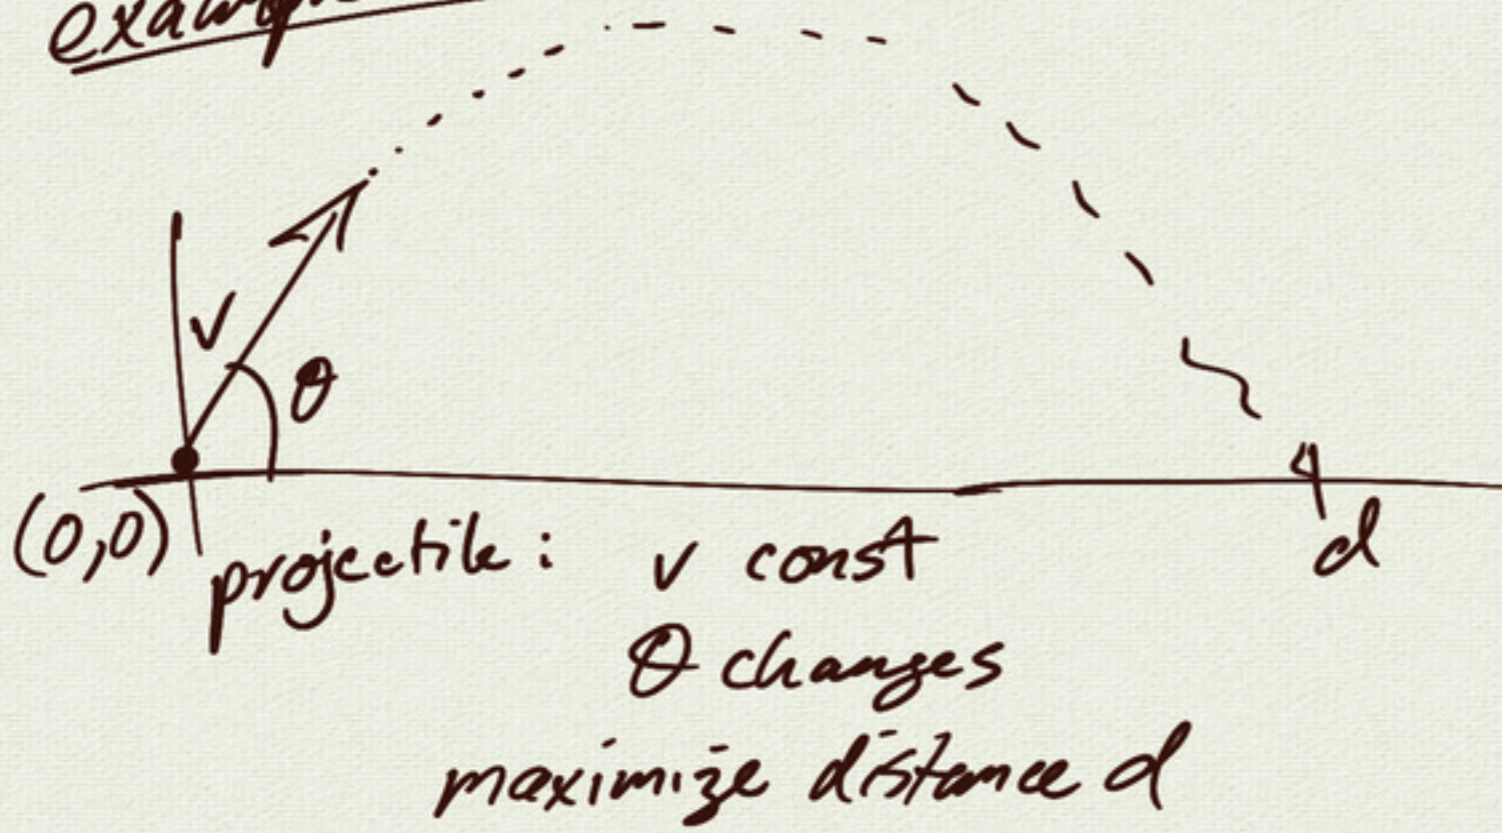 v
θ
(0,0)
d
projectile: v const
θ changes
maximize distance d